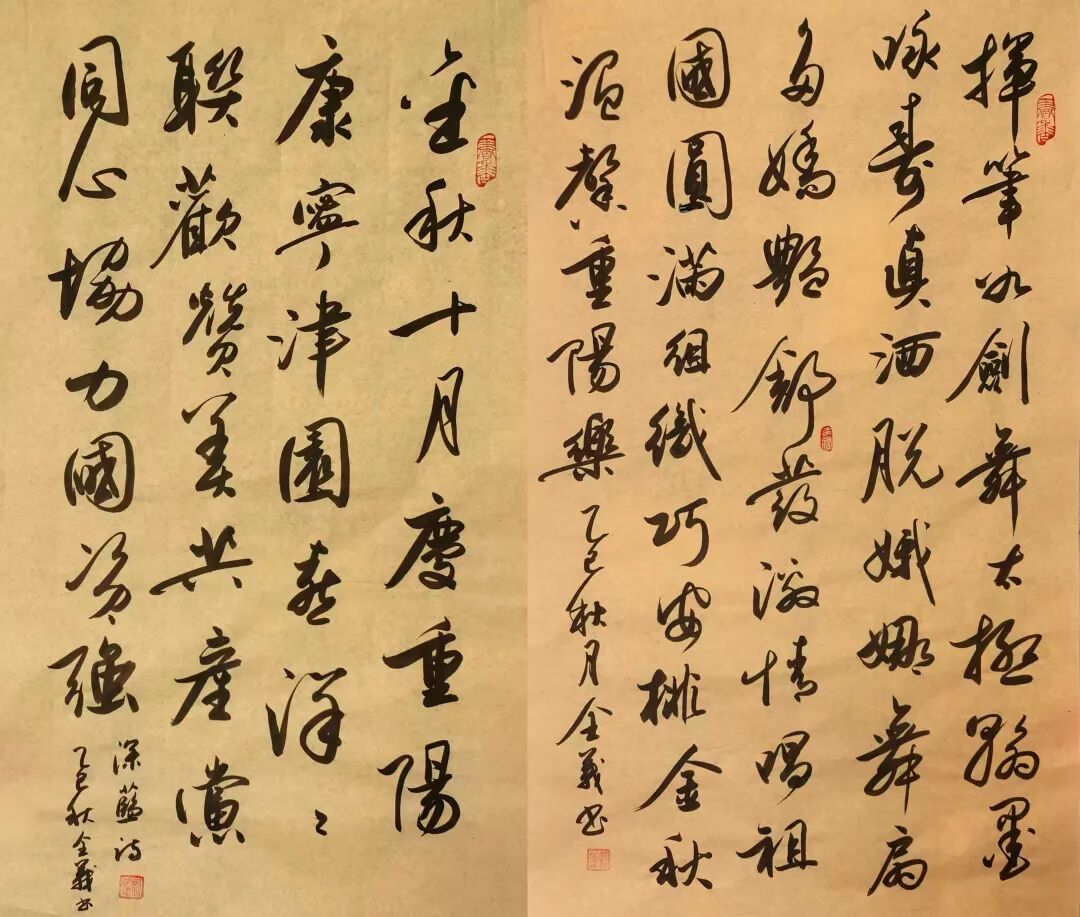 揮筆如劍舞太極翰墨
咏壽真洒脱娥娜舞扇
多嬌艷舒發激情唱祖
國圓滿組織巧安排金秋
温馨重陽樂 乙巳秋月全義書
金秋十月慶重陽
康寧津園喜洋〻
聯歡贊美共產黨
同心協力國資強
深藍詩
乙巳秋全義書